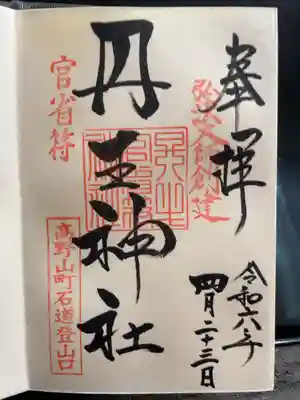 奉拝
弘法大師創建
令和六年
四月二十三日
丹生神社
官省符
高野山町石道登山口